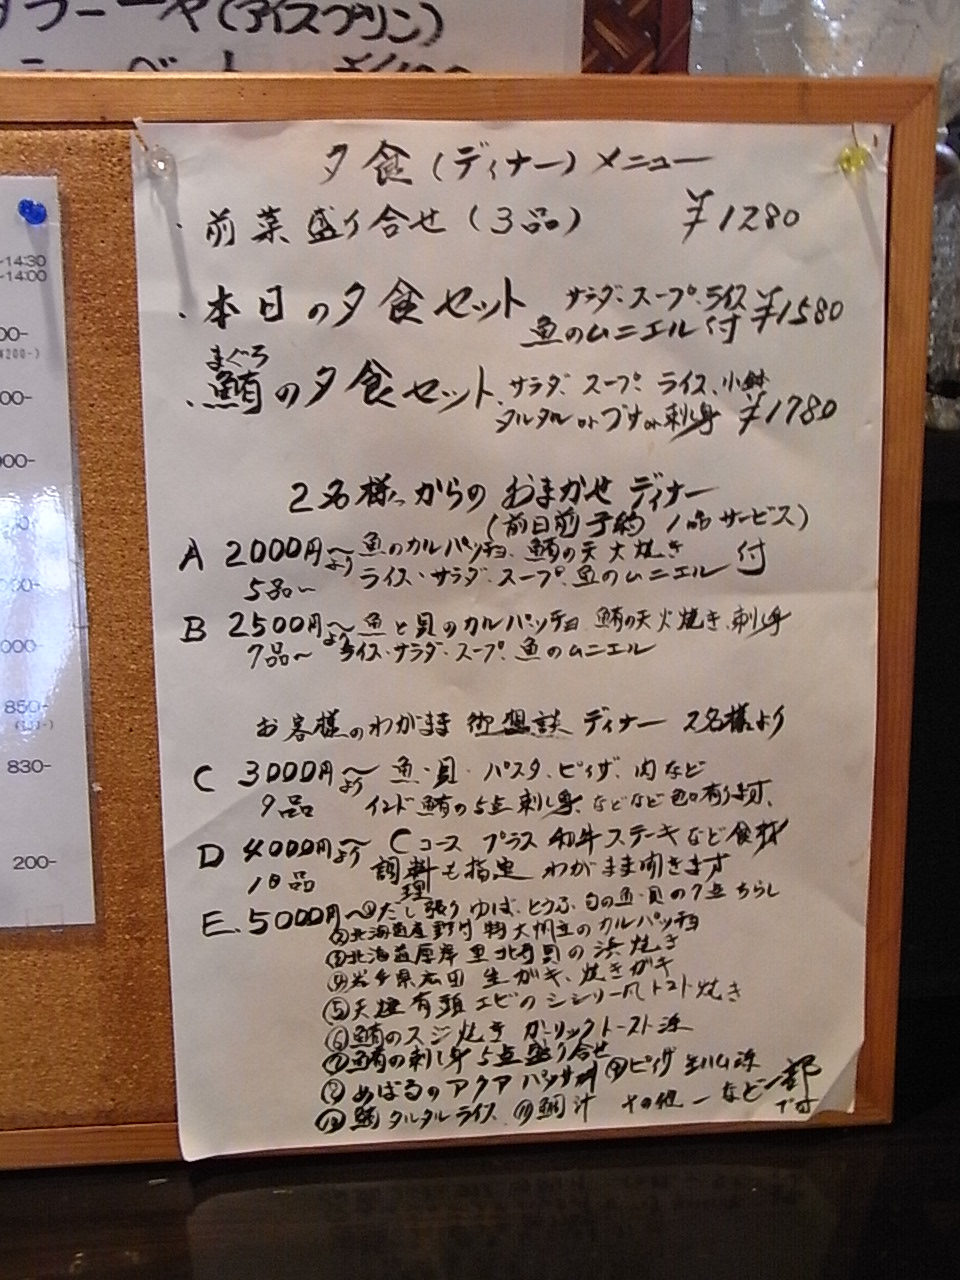 (アイスプリン)
夕食(ディナー)メニュー
・前菜盛り合せ(3品) ¥1280
・本日の夕食セット サラダ・スープ・ライス ¥1580
魚のムニエル付
まぐろ
・鮪の夕食セット、サラダ、スープ、ライス、小鉢
タルタル or づけ or 刺し身 ¥1780
2名様からのおまかせディナー
(前日前予約 1品サービス)
A 2000円〜より 魚のカルパッチョ、鮪の天火焼き 付
5品〜 ライス・サラダ・スープ、魚のムニエル
B 2500円〜より 魚と貝のカルパッチョ 鮪の天火焼き、刺し身
7品〜 ライス・サラダ・スープ、魚のムニエル
お客様のわがまま 御想談 ディナー 2名様より
C 3000円〜より 魚・貝・パスタ、ピィザ、肉など
9品 インド鮪の5点刺し身、などなど色々有ります、
D 4000円〜より Cコース プラス 和牛ステーキなど食材
10品 調理料も指定 わがまま聞きます
E. 5000円〜 ①だし張り ゆば、とうふ、旬の魚・貝の7点ちらし
②北海道産野付 特大帆立のカルパッチョ
③北海道厚岸 黒北寄貝の浜焼き
④岩手県広田 生ガキ、焼きガキ
⑤天然有頭エビのシシリー風トマト焼き
⑥鮪のスジ焼き ガーリックトースト添
⑦鮪の刺し身 5点盛り合せ
⑧めばるのアクアパッサ ⑨ピィザ 生ハム添
⑩ タルタルライス ⑪鯛汁 その他 ー など一部
です
~14:30
~14:00
850-
830-
200-